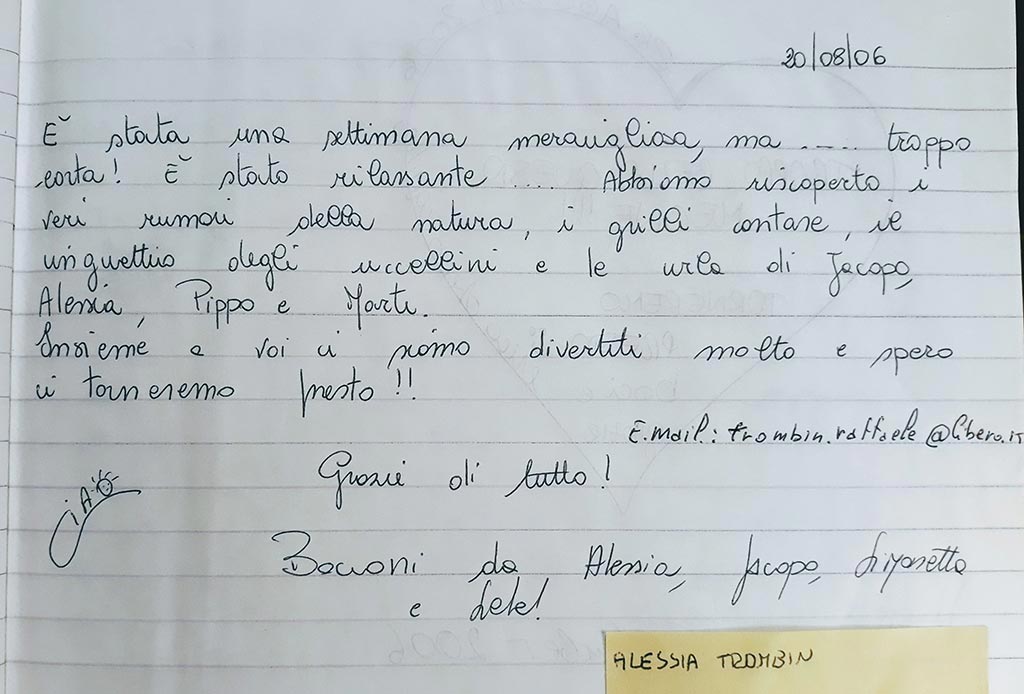 20/08/06
E' stata una settimana meravigliosa, ma ..... troppo
corta! E' stato rilassante .... Abbiamo riscoperto i
veri rumori della natura, i grilli cantare, il
cinguettio degli uccellini e le urla di Jacopo,
Alessia, Pippo e Marti.
Insieme a voi ci siamo divertiti molto e spero
ci torneremo presto!!
E.mail: trombin.raffaele@libero.it
Grazie di tutto!
CiAO
Bacioni da Alessia, Jacopo, Simonetta
e Lele!
ALESSIA TROMBIN